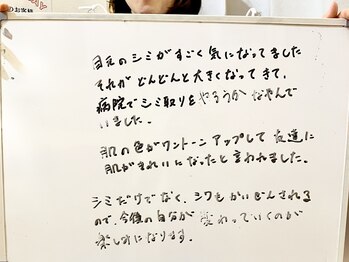 目元のシミがすごく気になってました
それがどんどんと大きくなってきて、
病院でシミ取りをやろうかなやんで
いました。
肌の色がワントーンアップして友達に
肌がきれいになったと言われました。
シミだけでなく、シワもかいぜんされる
ので、今後の自分が変わっていくのが
楽しみになります。